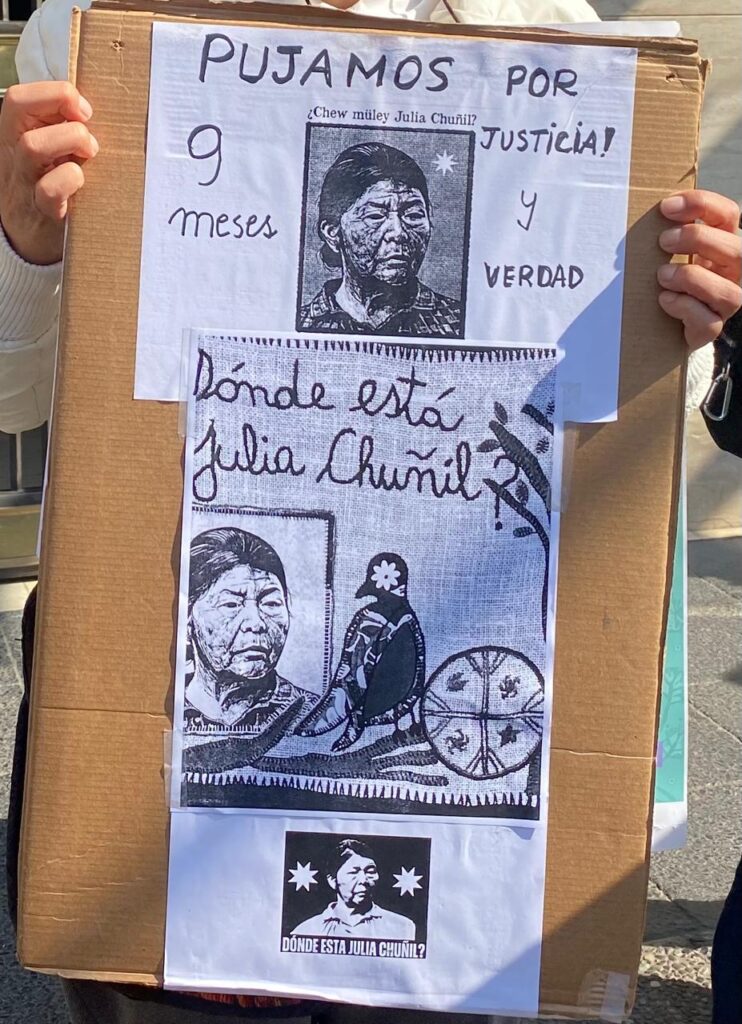 PUJAMOS POR
¿Chew müley Julia Chuñil?
9
meses
JUSTICIA!
y
VERDAD
Dónde está
Julia Chuñil?
DÓNDE ESTA JULIA CHUÑIL?